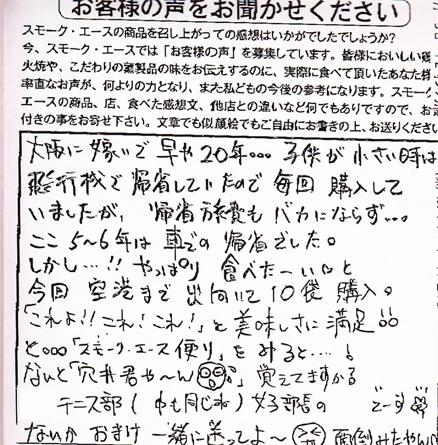 お客様の声をお聞かせください
スモーク・エースの商品を召し上がっての感想はいかがでしたでしょうか?
今、スモーク・エースでは「お客様の声」を募集しています。皆様においしい
火焼や、こだわりの製品の味をお伝えするのに、実際に食べて頂いたあなた様
率直なお声が、何よりの力となり、また私どもの今後の参考になります。スモーク
エースの商品、店、食べた感想文、他店との違いなど何でもありですので、お
付きの事をお寄せ下さい。文章でも似顔絵でもご自由にお書きの上、お送りくださ
大阪に嫁いで早や20年… 子供が小さい時は
飛行機で帰省していたので毎回購入して
いましたが、帰省旅費もバカにならず…。
ここ5~6年は車での帰省でした。
しかし…!! やっぱり食べたーい。と
今回空港まで出向いて10袋購入。
「これよ!!これ!これ!」と美味しさに満足
と。。。「スモーク・エース便り」をみると…!
なんと「穴井君や~ん 覚えてますかる
テニス部(中も同じね)女子部長の でーす
ないか おまけ 一緒に送ってよ~ 面倒みたやん